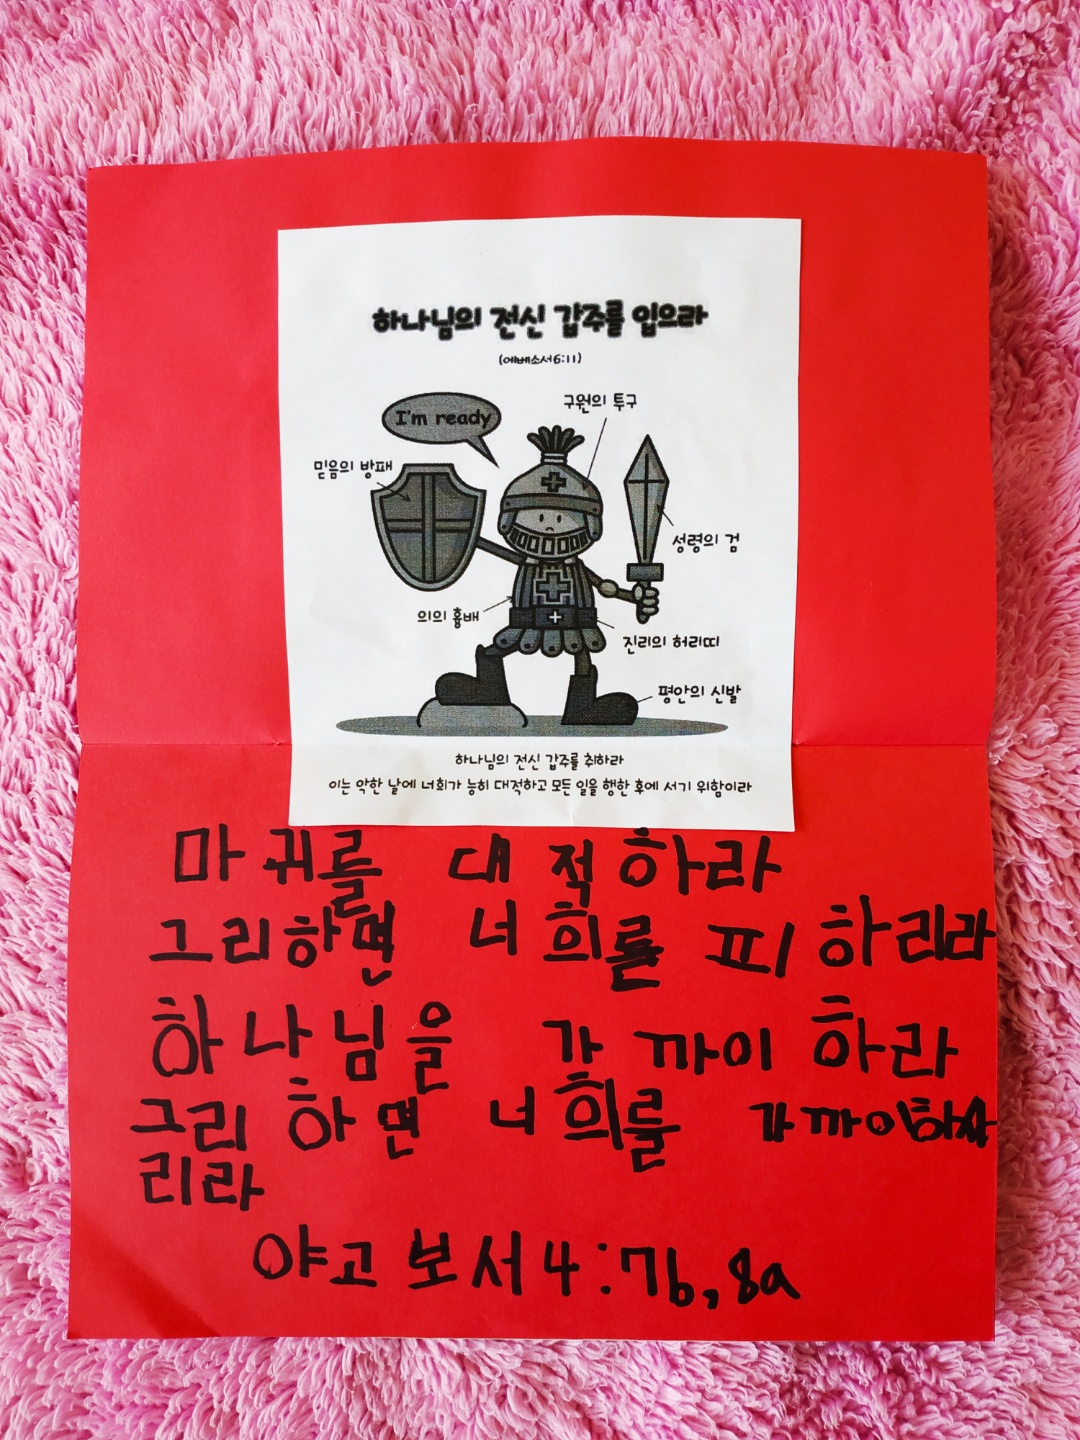 하나님의 전신 갑주를 입으라
(에베소서6:11)
I'm ready
구원의 투구
믿음의 방패
성령의 검
의의 흉배
진리의 허리띠
평안의 신발
하나님의 전신 갑주를 취하라
이는 악한 날에 너희가 능히 대적하고 모든 일을 행한 후에 서기 위함이라
마귀를 대적하라
그리하면 너희를 피하리라
하나님을 가까이하라
그리하면 너희를 가까이하시
리라
야고보서4:7b,8a